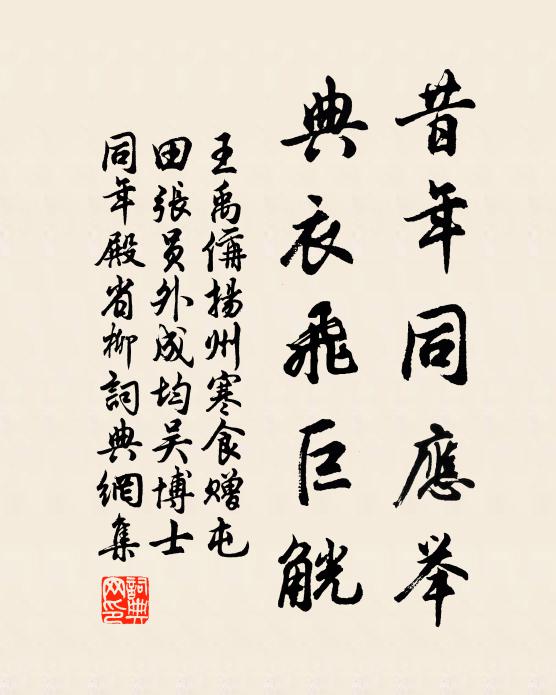 昔年同應举
典衣飛巨觥
王禹偁揚州寒食赠屯
田張员外成均吴博士
同年殿省柳詞典網集
詞典
网印